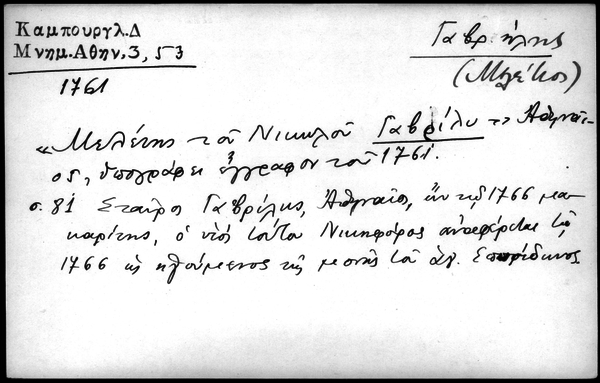 Καμπουργλ.Δ
Μνημ.Αθην.3, 53
1761
Γαβρ ήλης
(Μελέτιος)
"Μελέτης τοῦ Νικηλοῦ Γαβρίλη Ἀθηναῖ-
ος, ὑπογράφει ἔγγραφον τοῦ 1761.
σ. 81 Σταῦρος Γαβρίλης, Ἀθηναῖος, ἦν τῷ 1766 μα-
καρίτης, ὁ υἱός τούτου Νικηφόρος ἀναφέρεται τῷ
1766 ὡς ἡγούμενος τῆς μονῆς τοῦ ἁγ. Σπυρίδωνος